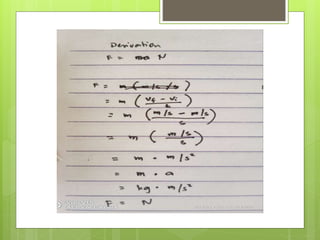 Derivation
F = N
F = m ( m/s/s )
= m ( vf - vi / t )
= m ( m/s - m/s / s )
= m ( m/s / s )
= m • m/s²
= m • a
= kg • m/s²
F = N